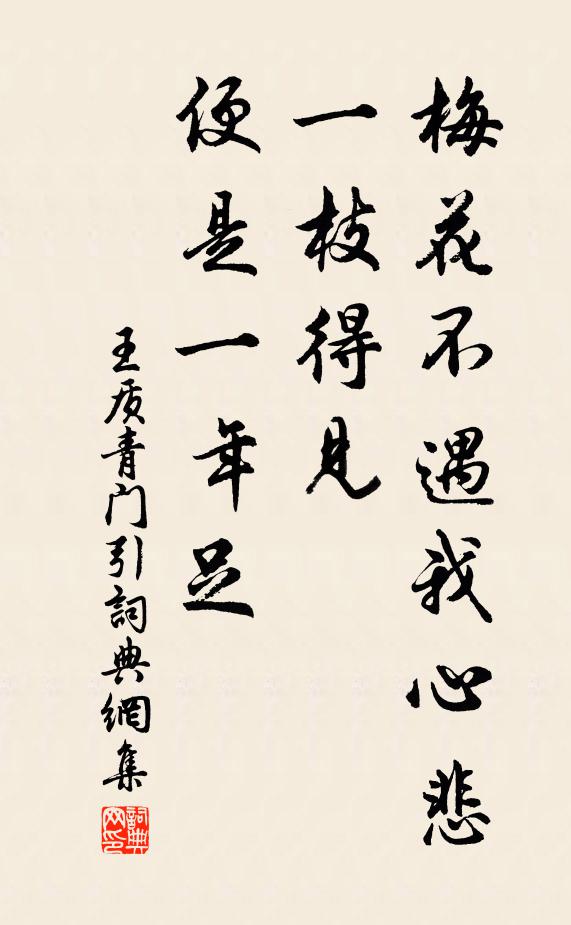 梅花不遇我心悲
一枝得见
便是一年足
王质青门引詞典網集
詞典网印